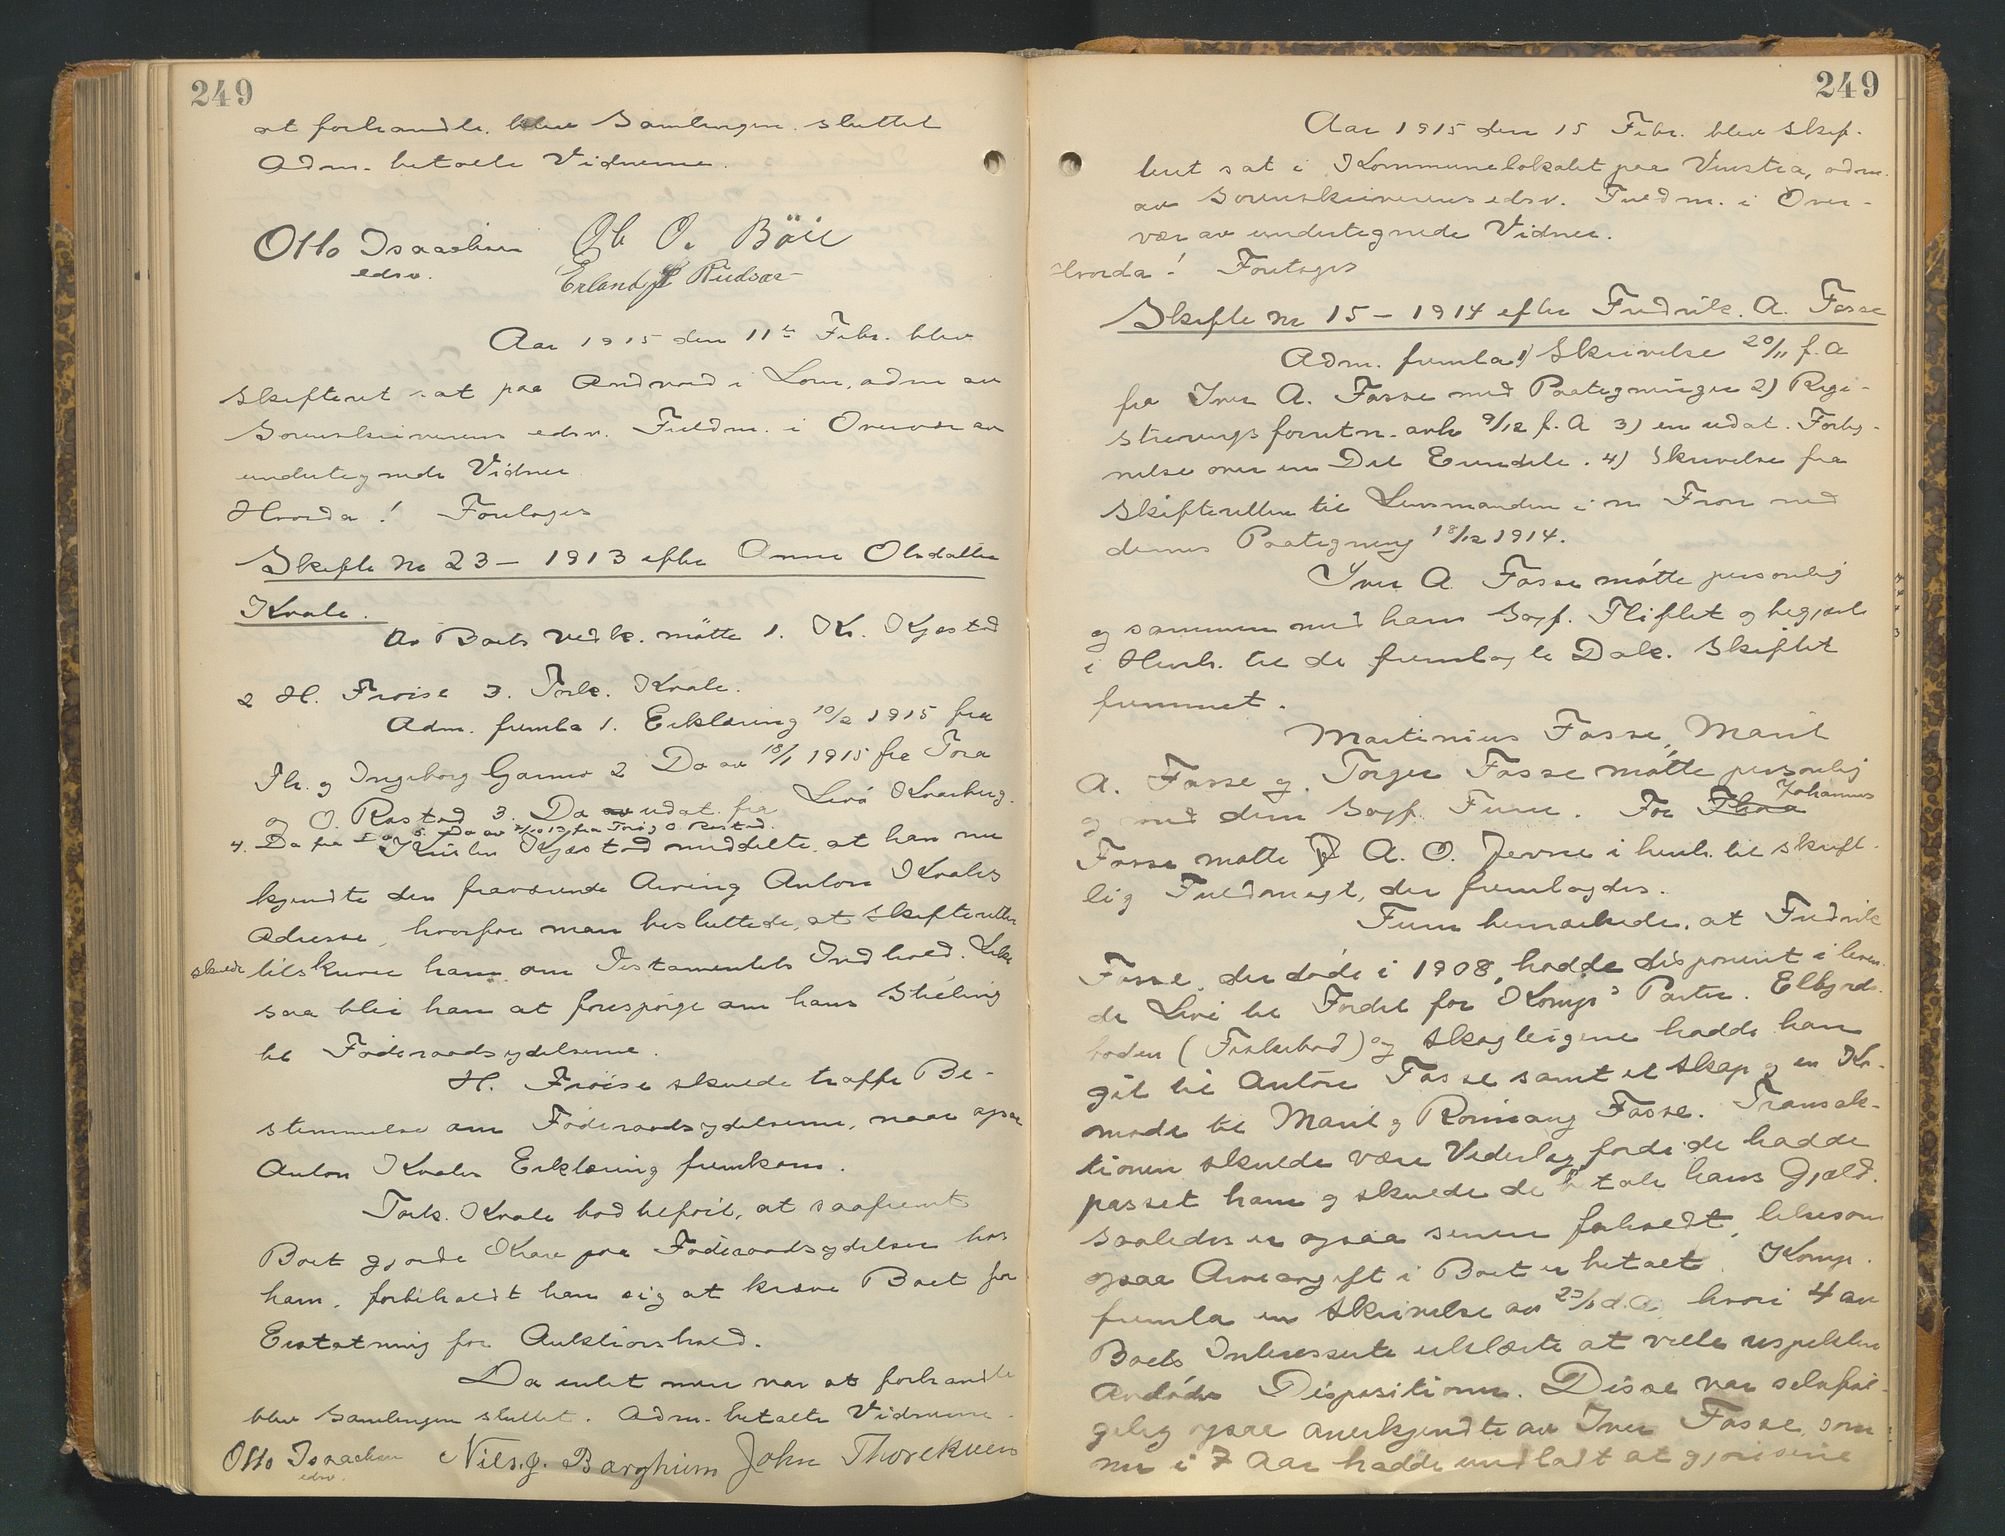 249
at forhandle, blev Samlingen sluttet
Adm. betalte Vidnerne.
Otto Isaachsen Ole O. Böie
edsv. Erland Rudsar
Aar 1915 den 11te Febr. blev
Skifteret sat paa Andvord i Lom, adm av
Sorenskriverens edsv. Fuldm. i Overvær av
undertegnede Vidner.
Hvorda! Foretoges
Skifte No 23 – 1913 efter Anne Olsdatter
Kvale.
Av Boets vedk. møtte 1. Kr. Kjæstad
2 H. Frøise 3. Tork. Kvale.
Adm. fremla 1. Erklæring 10/2 1915 fra
Th. og Ingeborg Garmo 2 Do av 18/1 1915 fra Tora
og O. Rostad 3. Do udat. fra Livø Kvarberg.
4. Do fra
Kristen Kjæstad meddelte, at han nu
kjendte den fraværende Arving Anton Kvales
Adresse, hvorfor man besluttede, at skifteretten
skulde tilskrive ham om Testamentets Indhold. Like
saa blir han at forespørge om hans Stilling
til Føderaadsydelserne.
H. Frøise skulde træffe Be-
stemmelse om Føderaadsydelserne, naar ogsaa
Anton Kvales Erklæring fremkom.
Tork. Kvale bad tilført, at saafremt
Boet gjorde Krav paa Føderaadsydelser hos
ham, forbeholdt han sig at kræve Boet for
Erstatning for Auktionshold.
Da intet mer var at forhandle
blev Samlingen sluttet. Adm. betalte Vidnerne.
Otto Isaachsen Nils. J. Barghiem John Thorekven
edsv.
249
Aar 1915 den 15 Febr. blev Skif-
teret sat i Kommunelokalet paa Vinstra, adm.
av Sorenskriverens edsv. Fuldm. i Over-
vær av undertegnede Vidner.
Hvorda! Foretoges
Skifte No 15 – 1914 efter Fredrik A. Fosse
Adm. fremla 1) Skrivelse 20/11 f. A
fra Iver A. Fosse med Paategninger 2) Regi-
streringsforretn. avh 9/12 f. A 3) en udat. Forteg-
nelse over en Del Eiendele. 4) Skrivelse fra
Skifteretten til Lensmanden i n Fron med
dennes Paategning 18/12 1914.
Iver A. Fosse møtte personlig
og sammen med ham Sagf. Fliflet og begjærte
i Henh. til de fremlagte Dok. Skiftet
fremmet.
Martinius Fosse, Marit
A. Fosse og Torger Fosse møtte personlig
og med dem Sagf. Furu. For Johannes
Fosse møtte A. O. Jevne i henh. til skrift-
lig Fuldmagt, der fremlagdes.
Furu bemærkede, at Fredrik
Fosse, der døde i 1908, hadde disponert i leven-
de Live til Fordel for Komp's Parter. Elbjørds-
boden (Fiskebod) og Skogteigene hadde han
git til Antone Fosse samt et Skap og en Ko-
mode til Marit og Ronnaug Fosse. Transak-
tionen skulde være Vederlag fordi de hadde
passet ham og skulde de betale hans Gjæld.
Saaledes er ogsaa senere forholdt, likesom
ogsaa Arveavgift i Boet er betalt. Komp.
fremla en Skrivelse av d. A. hvori 4 av
Boets Interesserte erklærte at ville respektere
Avdødes Dispositioner. Disse var selvføl-
gelig ogsaa anerkjendte av Iver Fosse, som
nu i 7 Aar hadde undladt at gjøre sine